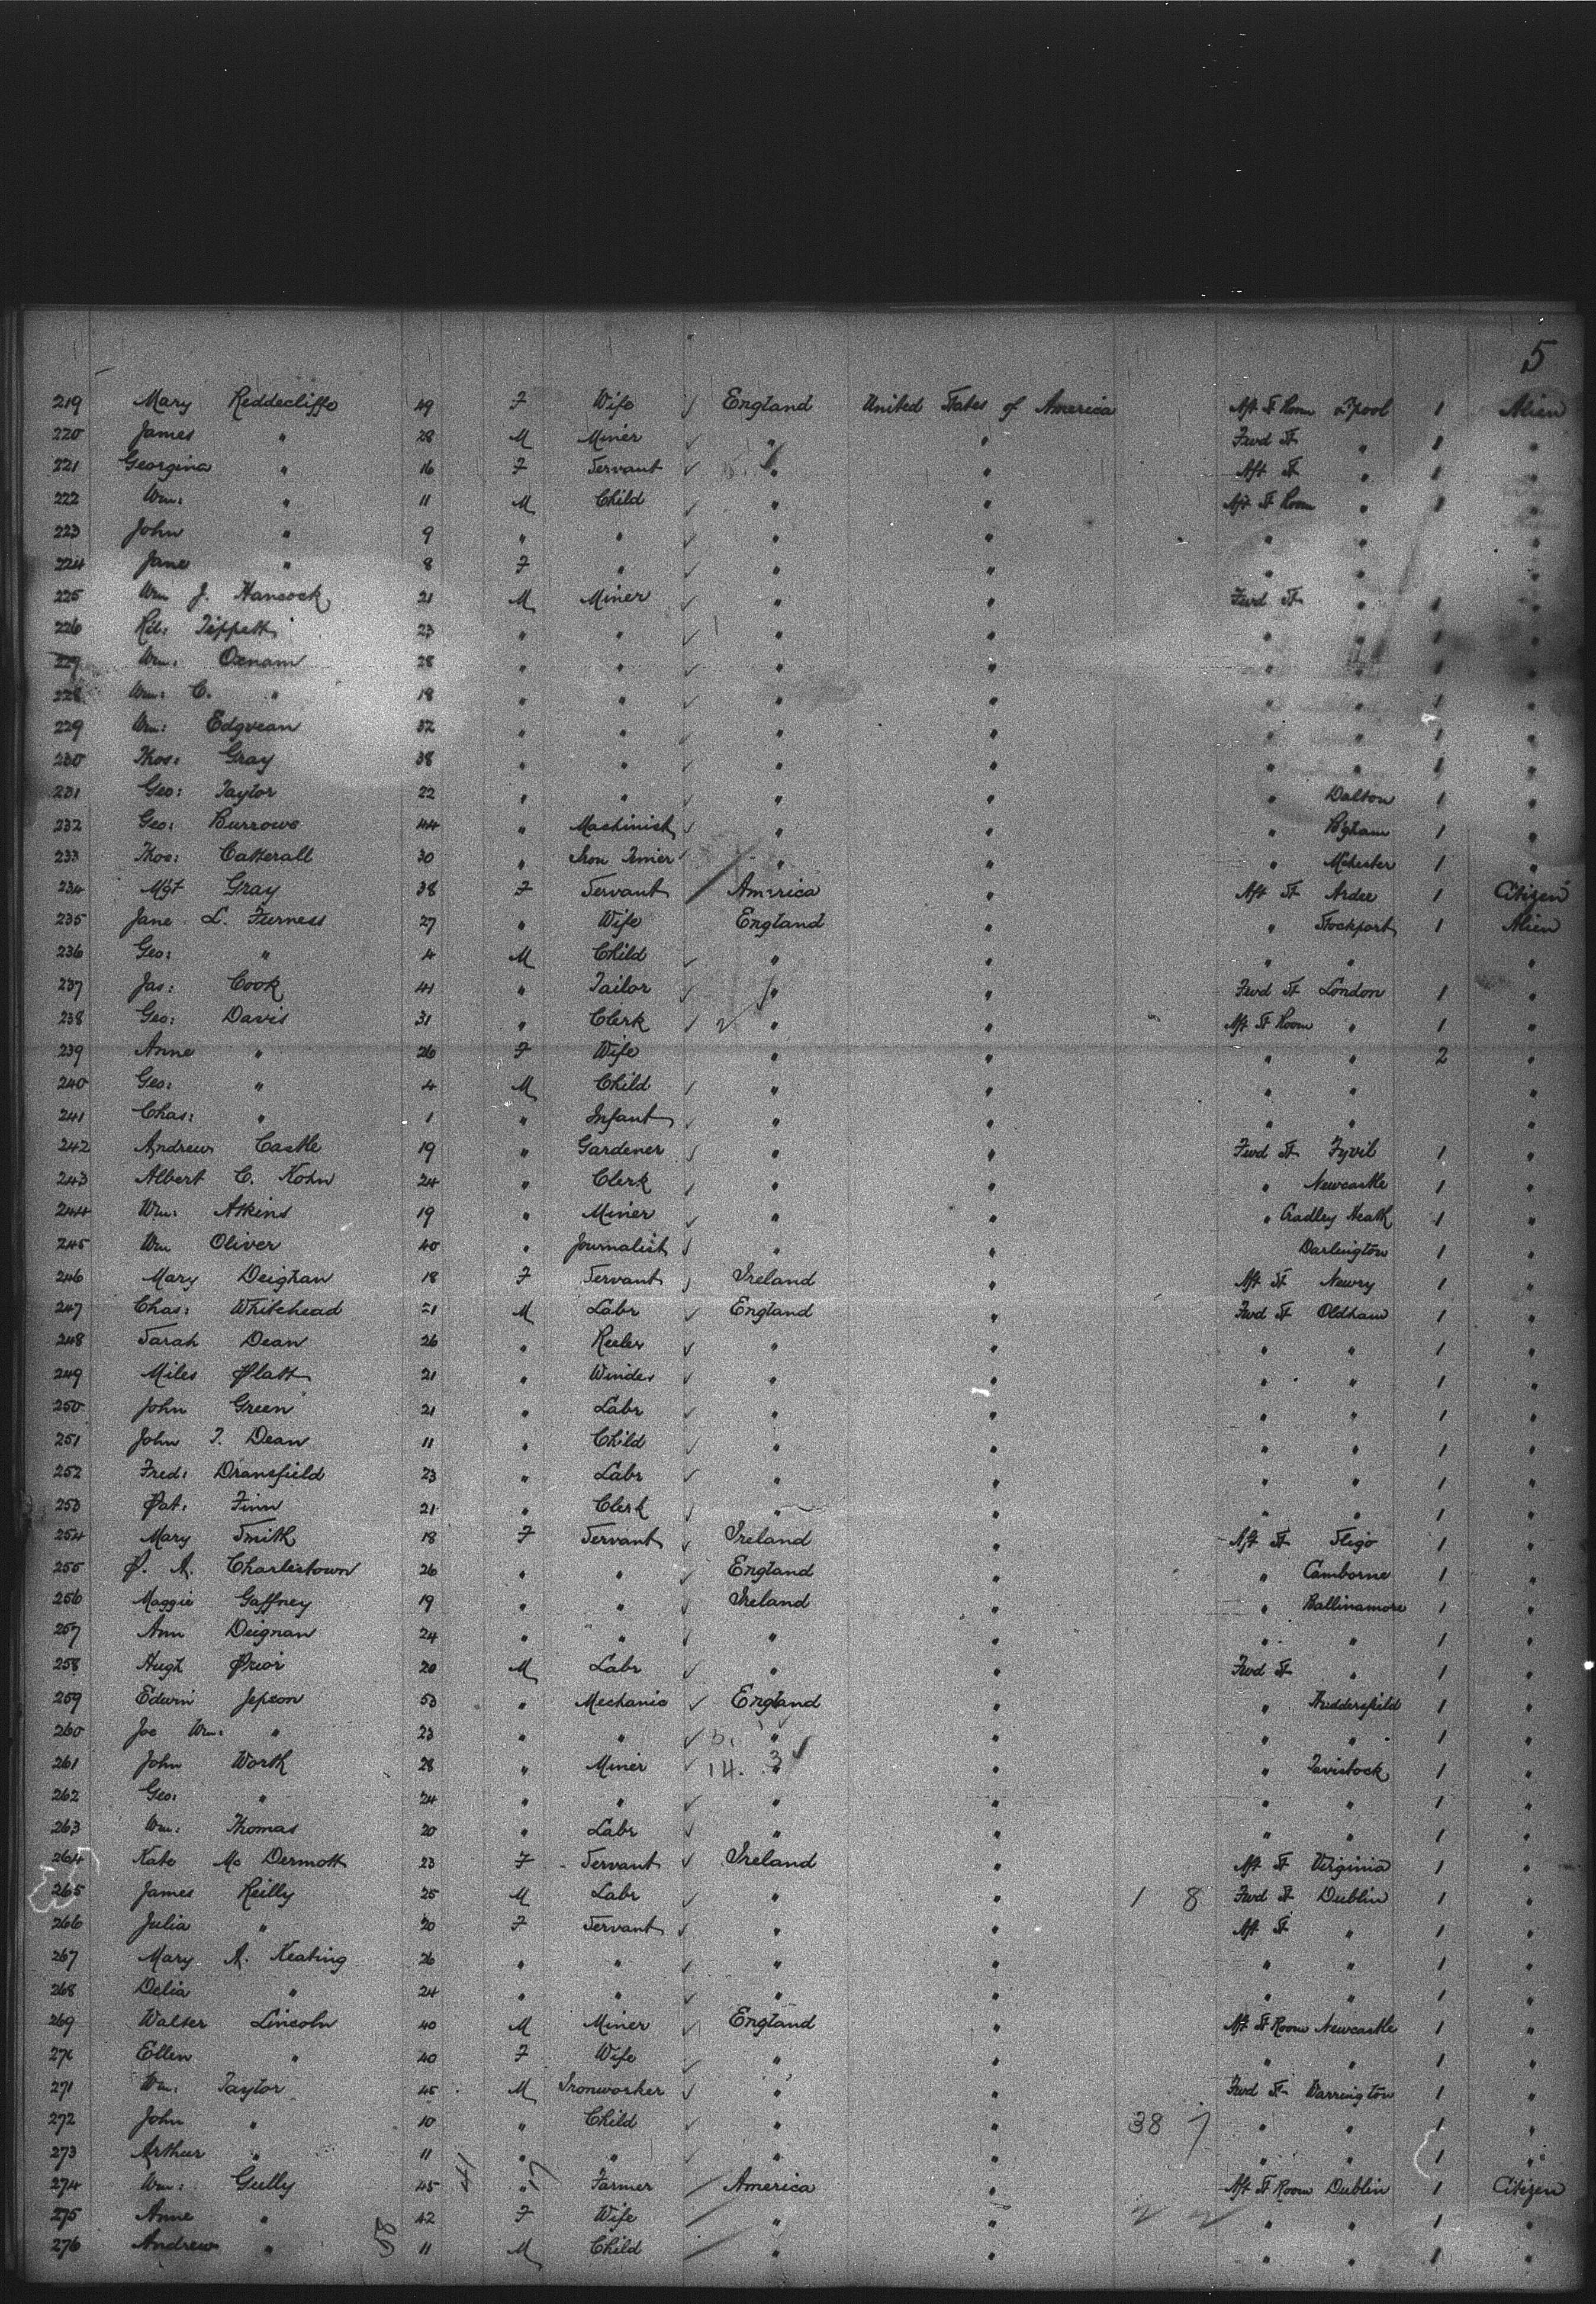 5
219 Mary Reddecliffe 49 F Wife England United States of America Aft St Room L'pool 1 Alien
220 James " 28 M Miner " " Fwd St " 1 "
221 Georgina " 16 F Servant " " Aft St " 1 "
222 Wm: " 11 M Child " " Aft St Room " 1 "
223 John " 9 " " " " " " "
224 Jane " 8 F " " " " " "
225 Wm J. Hancock 21 M Miner " " Fwd St " 1 "
226 Rd: Tippett 23 " " " " " " 1 "
227 Wm: Oxnam 28 " " " " " " 1 "
228 Wm: C. " 18 " " " " " " 1 "
229 Wm: Edgvean 32 " " " " " " 1 "
230 Thos: Gray 38 " " " " " " 1 "
231 Geo: Taylor 22 " " " " " Dalton 1 "
232 Geo: Burrows 44 " Machinist " " " B'gham 1 "
233 Thos: Catterall 30 " Iron " " " M'chester 1 "
234 Mgt Gray 38 F Servant America " Aft St Ardee 1 Citizen
235 Jane L. Furness 27 " Wife England " " Stockport 1 Alien
236 Geo: " 4 M Child " " " " "
237 Jas: Cook 41 " Tailor " " Fwd St London 1 "
238 Geo: Davis 31 " Clerk 2 " " Aft St Room " 1 "
239 Anne " 26 F Wife " " " " 2 "
240 Geo: " 4 M Child " " " " "
241 Chas: " 1 " Infant " " " " "
242 Andrew Castle 19 " Gardener " " Fwd St Fyvil 1 "
243 Albert C. Kohn 24 " Clerk " " " Newcastle 1 "
244 Wm: Atkins 19 " Miner " " " Cradley Heath 1 "
245 Wm Oliver 40 " Journalist " " Darlington 1 "
246 Mary Deighan 18 F Servant Ireland " Aft St Newry 1 "
247 Chas: Whitehead 21 M Labr England " Fwd St Oldham 1 "
248 Sarah Dean 26 " Reeler " " " " 1 "
249 Miles Platt 21 " Winder " " " " 1 "
250 John Green 21 " Labr " " " " 1 "
251 John T. Dean 11 " Child " " " " 1 "
252 Fred: Dransfield 23 " Labr " " " " 1 "
253 Pat: Finn 21 " Clerk " " " " 1 "
254 Mary Smith 18 F Servant Ireland " Aft St Sligo 1 "
255 P. A. Charlestown 26 " " England " " Camborne 1 "
256 Maggie Gaffney 19 " " Ireland " " Ballinamore 1 "
257 Ann Deignan 24 " " " " " " 1 "
258 Hugh Prior 20 M Labr " " Fwd St " 1 "
259 Edwin Jepson 53 " Mechanic England " " Huddersfield 1 "
260 Joe Wm: " 23 " " " " " " 1 "
261 John Worth 28 " Miner 14. 3 " " " Tavistock 1 "
262 Geo: " 24 " " " " " " 1 "
263 Wm: Thomas 20 " Labr " " " " 1 "
264 Kate Mc Dermott 23 F Servant Ireland " Aft St Virginia 1 "
265 James Reilly 25 M Labr " " 1 8 Fwd St Dublin 1 "
266 Julia " 20 F Servant " " Aft St " 1 "
267 Mary A. Keating 26 " " " " " " 1 "
268 Delia " 24 " " " " " " 1 "
269 Walter Lincoln 40 M Miner England " Aft St Room Newcastle 1 "
270 Ellen " 40 F Wife " " " " 1 "
271 Wm: Taylor 45 M Ironworker " " Fwd St Warrington 1 "
272 John " 10 " Child " " 38 7 " " 1 "
273 Arthur " 11 " " " " " " 1 "
274 Wm: Gully 45 41 " 7 Farmer America " Aft St Room Dublin 1 Citizen
275 Anne " 42 F Wife " " 2 2 " " 1 "
276 Andrew " 58 11 M Child " " " " 1 "